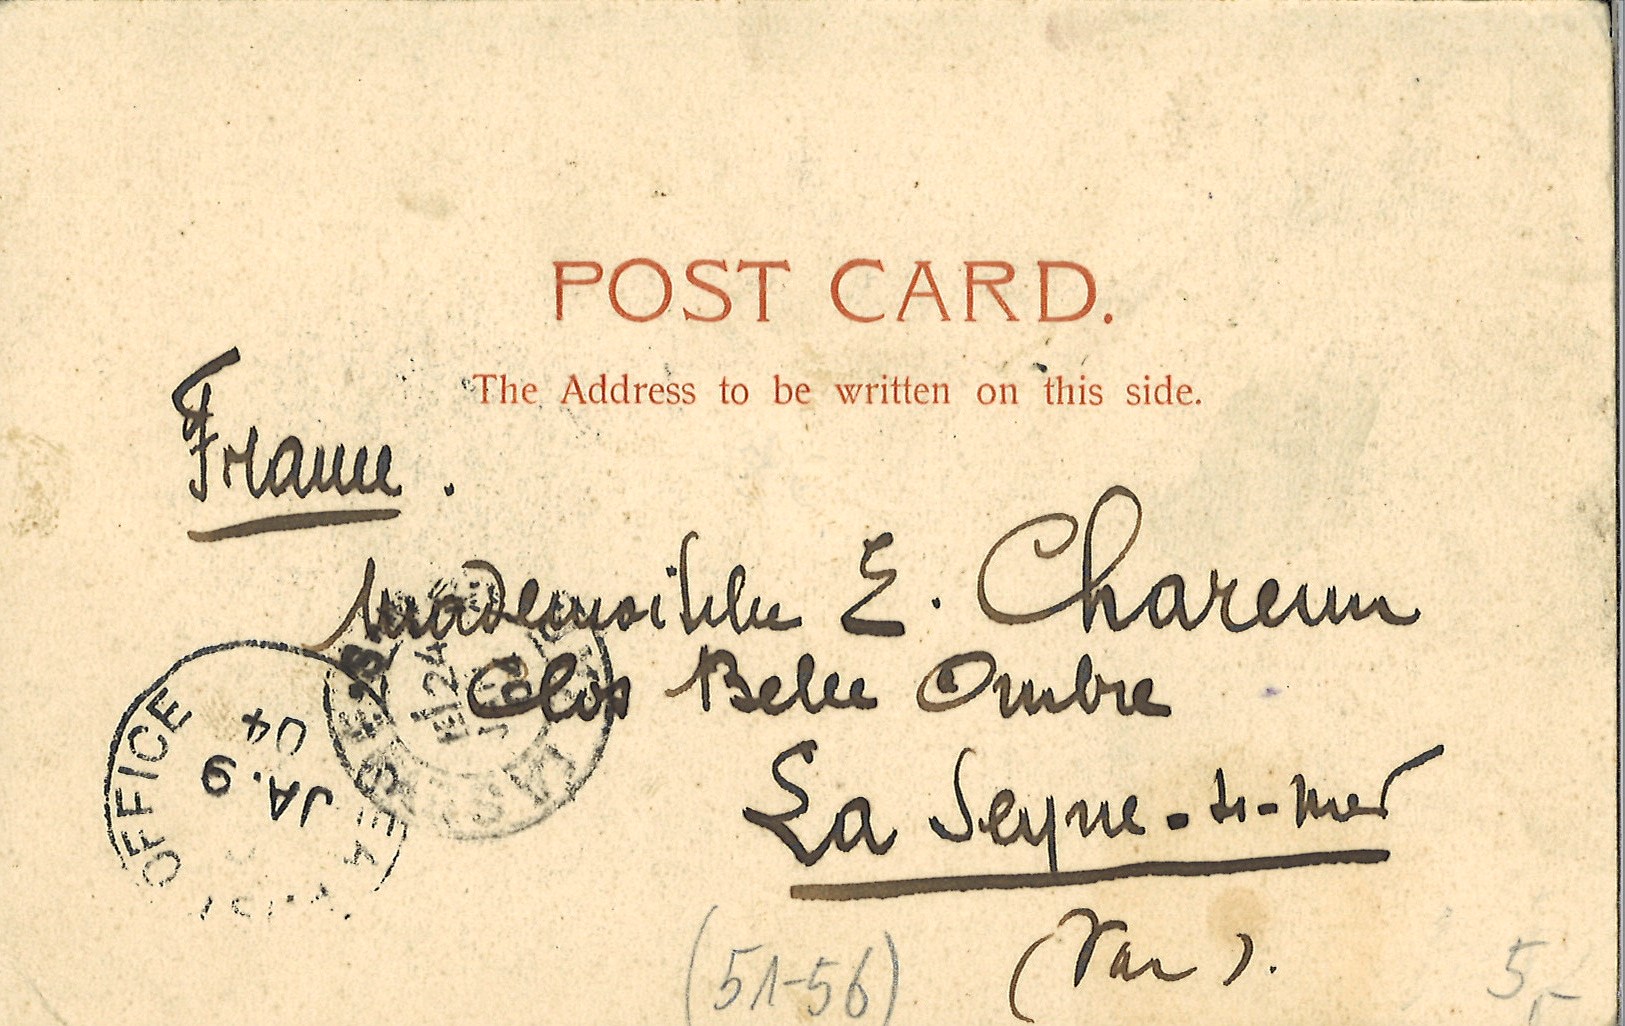 POST CARD.
The Address to be written on this side.
France.
Mademoiselle E.
Clos Belle Ombre
La Seyne-s-mer
(Var).
OFFICE
JA. 9
04
(51-56)
5,-